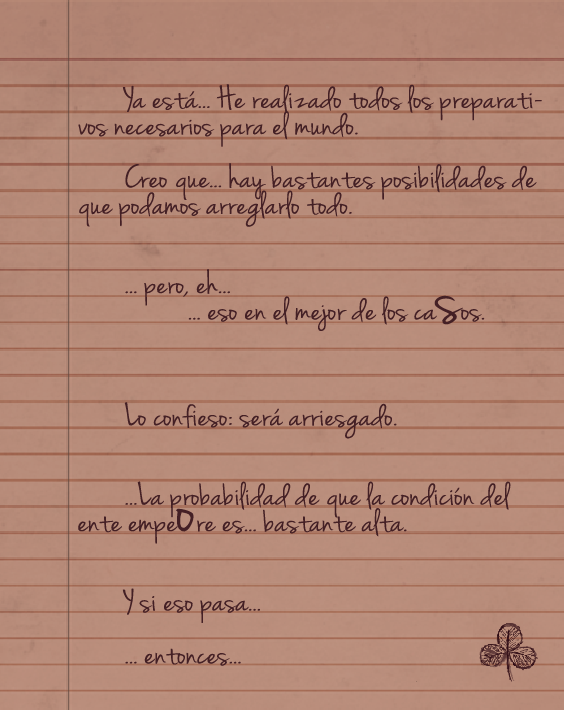 Ya está... He realizado todos los preparati-
vos necesarios para el mundo.
Creo que... hay bastantes posibilidades de
que podamos arreglarlo todo.
... pero, eh...
... eso en el mejor de los caSos.
Lo confieso: será arriesgado.
...La probabilidad de que la condición del
ente empeOre es... bastante alta.
Y si eso pasa...
... entonces...